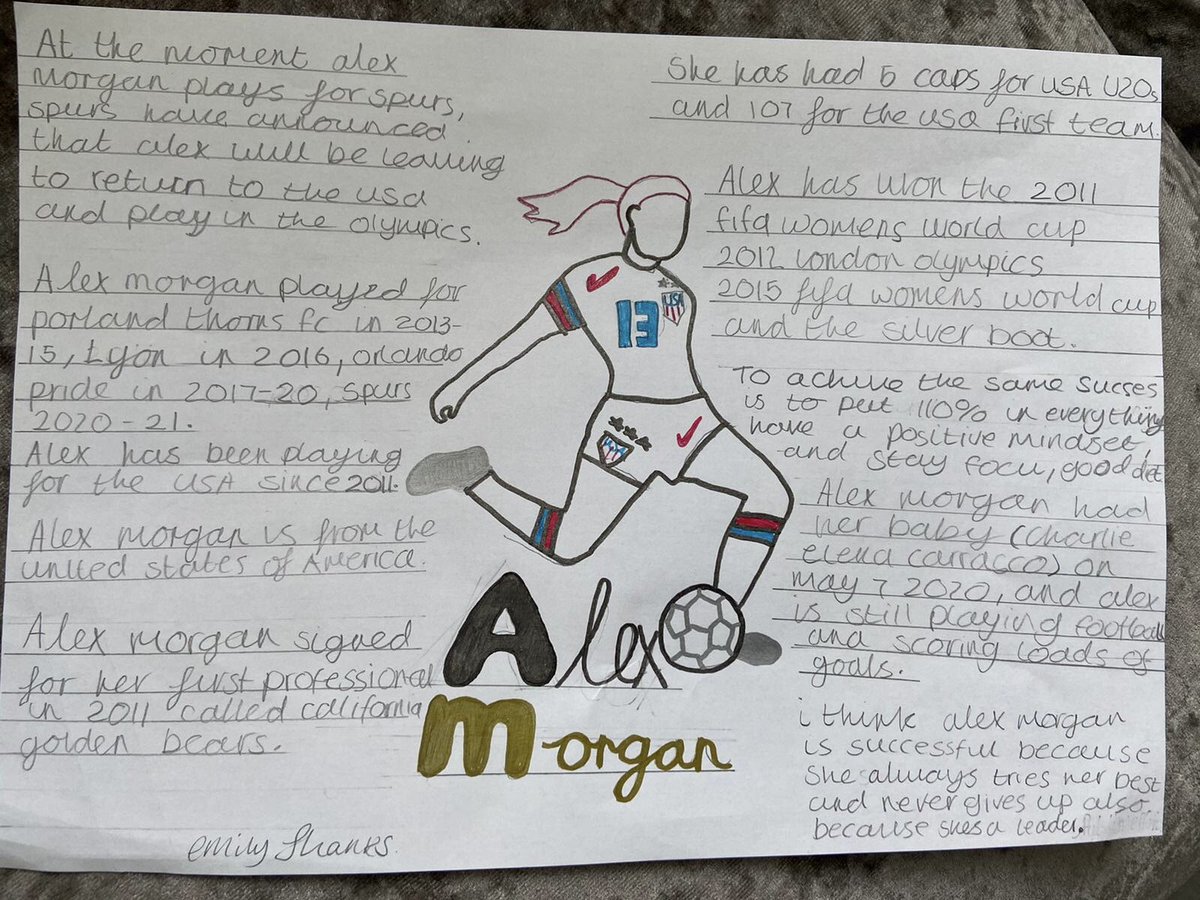 At the moment alex
morgan plays for spurs,
spurs have announced
that alex will be leaving
to return to the usa
and play in the olympics.
Alex morgan played for
porland thorns fc in 2013-
15, Lyon in 2016, orlando
pride in 2017-20, spurs
2020-21.
Alex has been playing
for the USA since 2011.
Alex morgan is from the
united states of America.
Alex morgan signed
for her first professional
in 2011 called california
golden bears.
emily Shanks.
13
USA
Alex
Morgan
She has had 5 caps for USA U20s
and 107 for the usa first team.
Alex has won the 2011
fifa womens world cup
2012 london olympics
2015 fifa womens world cup
and the silver boot.
To achive the same succes
is to put 110% in everything
have a positive mindset,
and stay focu, good diet
Alex morgan had
her baby (charlie
elena carrasco) on
may 7 2020, and alex
is still playing football
and scoring loads of
goals.
i think alex morgan
is successful because
she always tries her best
and never gives up also
because shes a leader.